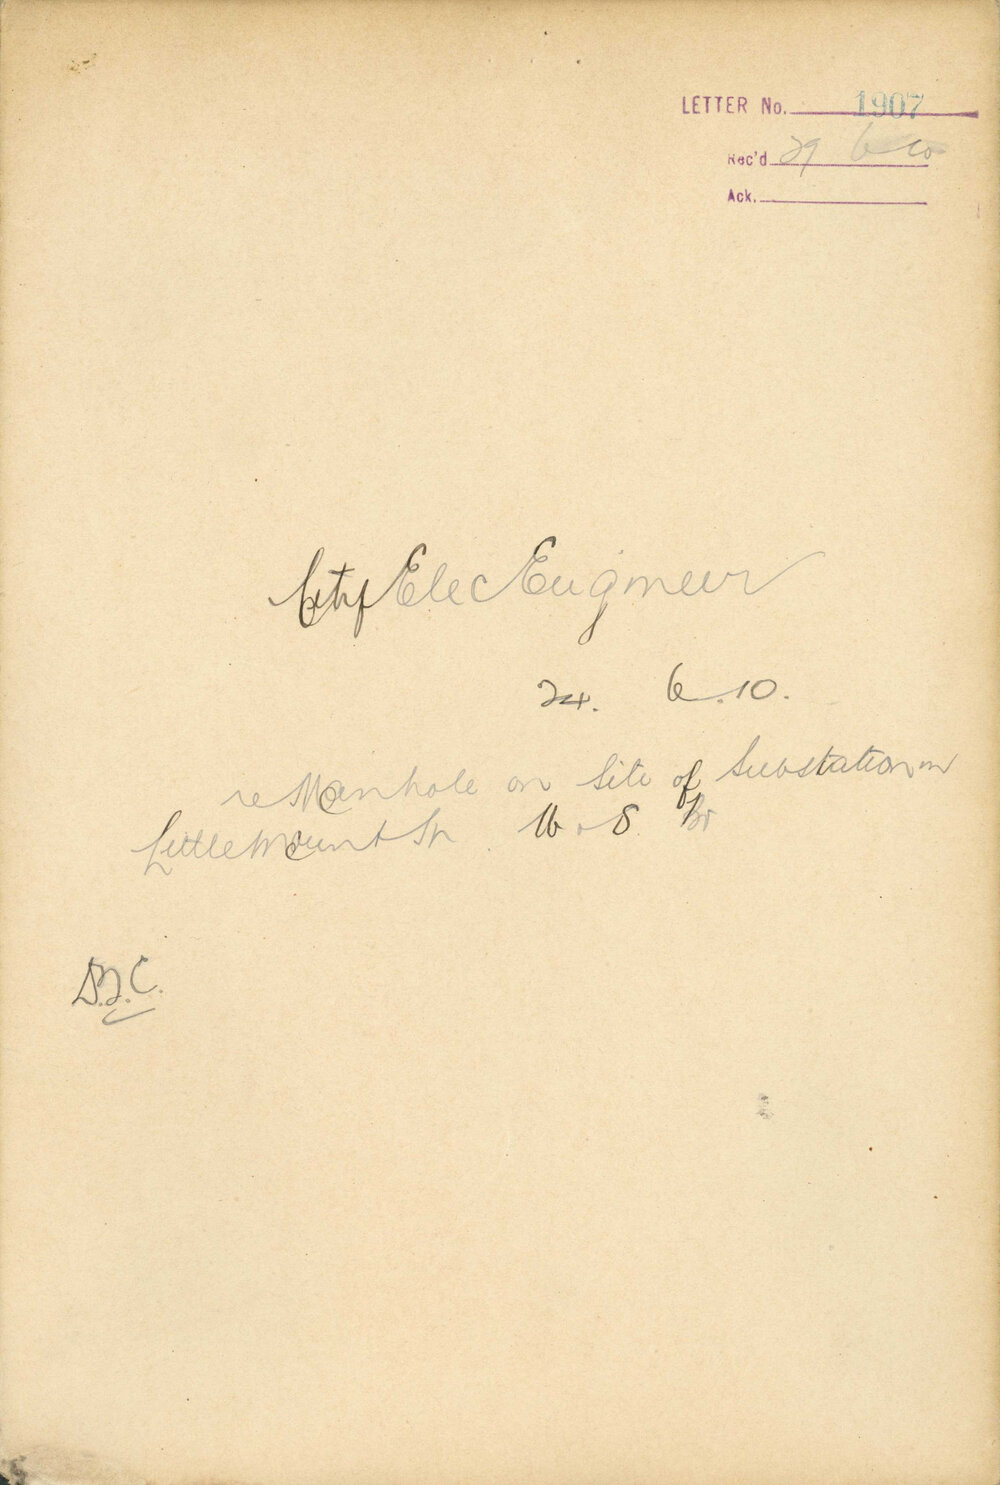 LETTER No. 1907
Rec'd 29 6 10
Ack.
City Elec Engineer
24. 6.10.
re Manhole on Site of Substation in
Little Mount St W & S Br
D.J.C.